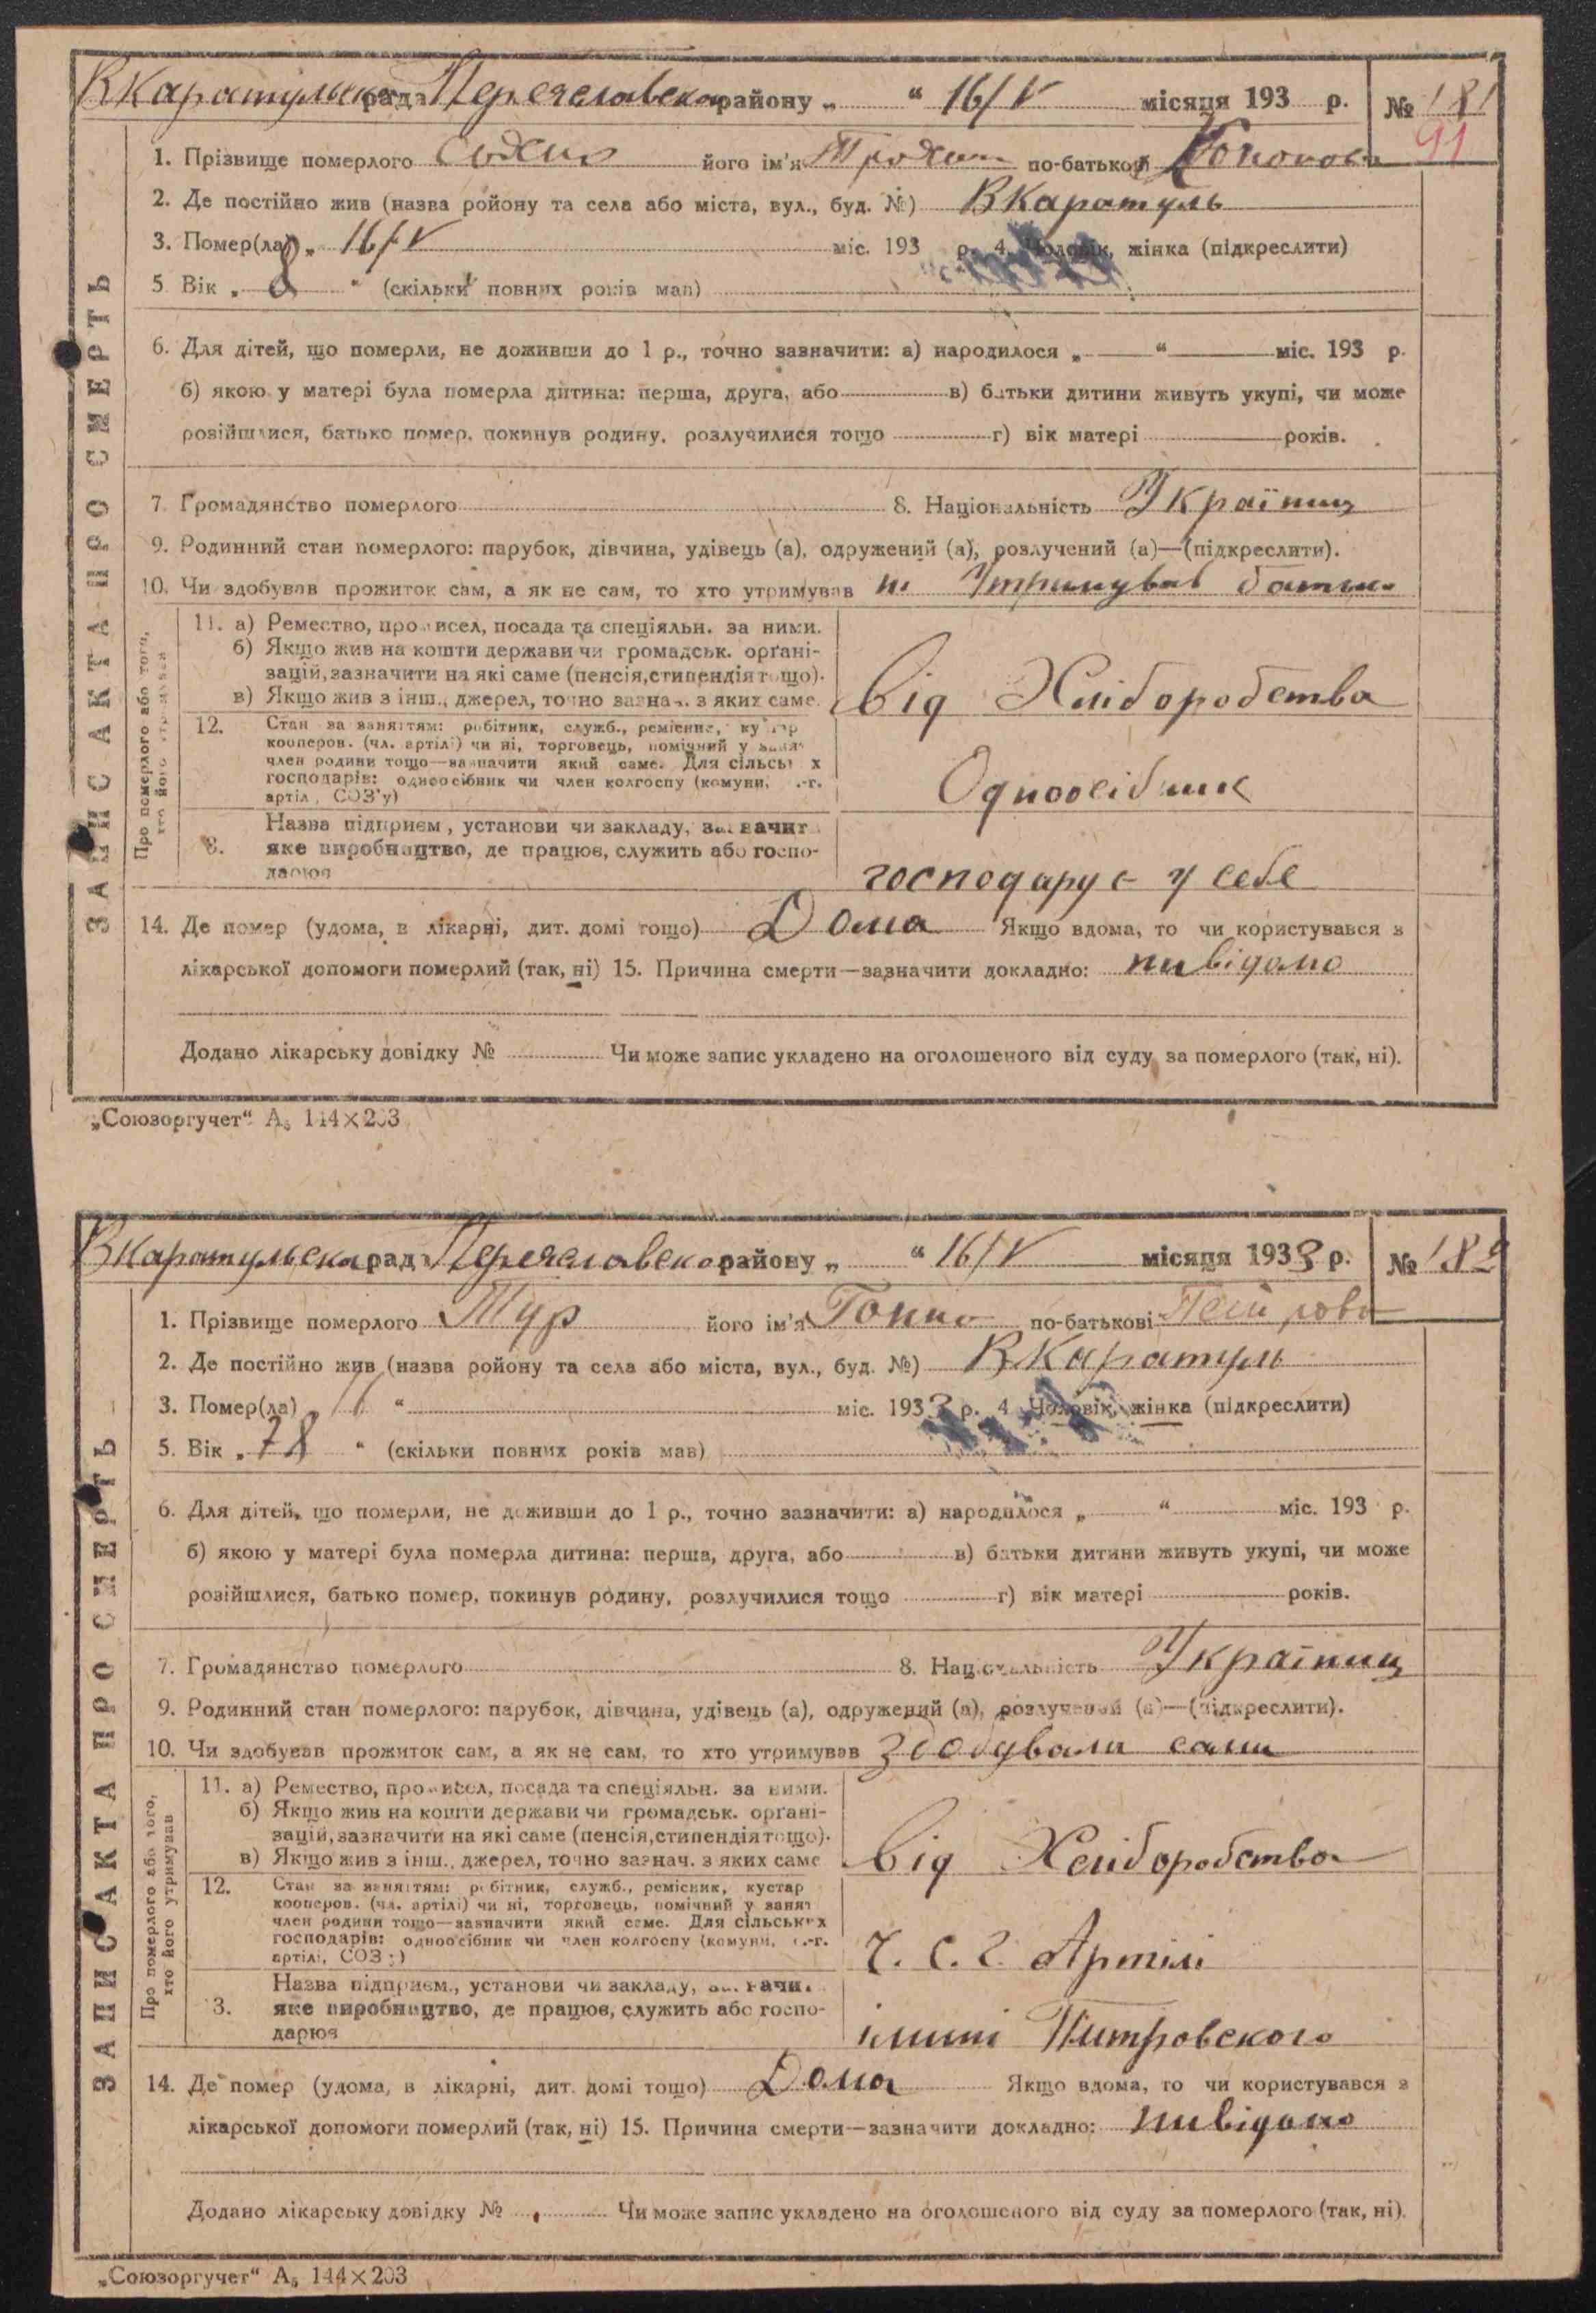 ВКаратульська рада Переяславского району „ “ 16/V місяця 193 р. № 181
91
1. Прізвище померлого його ім'я Трохим по-батькові
2. Де постійно жив (назва ройону та села або міста, вул., буд. №) ВКаратуль
3. Помер(ла) „ 16/V міс. 193 р. 4. Чоловік, жінка (підкреслити)
5 Вік „ 8 “ (скільки повних років мав)
6. Для дітей, що померли, не доживши до 1 р., точно зазначити: а) народилося „ “ міс. 193 р.
б) якою у матері була померла дитина: перша, друга, або в) батьки дитини живуть укупі, чи може
розійшлися, батько помер, покинув родину, розлучилися тощо г) вік матері років.
7. Громадянство померлого 8. Національність Українец
9. Родинний стан померлого: парубок, дівчина, удівець (а), одружений (а), розлучений (а)—(підкреслити).
10. Чи здобував прожиток сам, а як не сам, то хто утримував ні Утримував батько
ЗАПИС АКТА ПРО СМЕРТЬ
Про померлого або того, хто його утримував
11. а) Ремество, промисел, посада та спеціяльн. за ними.
б) Якщо жив на кошти держави чи громадськ. орґані-
зацій, зазначити на які саме (пенсія, стипендія тощо).
в) Якщо жив з інш., джерел, точно зазнач. з яких саме
від Хліборобства
12. Стан за заняттям: робітник, служб., ремісник, кустар
кооперов. (чл. артілі) чи ні, торговець, помічний у занят
член родини тощо—зазначити який саме. Для сільських
господарів: одноосібник чи член колгоспу (комуни, с.-г.
артіл, СОЗ'у)
Одноосібник
Назва підприєм, установи чи закладу, зазначит
яке виробництво, де працює, служить або госпо-
дарює
господарує у себе
14. Де помер (удома, в лікарні, дит. домі тощо) Дома Якщо вдома, то чи користувався з
лікарської допомоги померлий (так, ні) 15. Причина смерти—зазначити докладно: нивідомо
Додано лікарську довідку № Чи може запис укладено на оголошеного від суду за померлого (так, ні).
„Союзоргучет“ А5 144×203
ВКаратульська рада Переяславского району „ “ 16/V місяця 1933 р. № 182
1. Прізвище померлого Тур його ім'я по-батькові Петрова
2. Де постійно жив (назва ройону та села або міста, вул., буд. №) ВКаратуль
3. Помер(ла) „ “ міс. 1933 р. 4 Чоловік, жінка (підкреслити)
5. Вік „ 78 “ (скільки повних років мав)
6. Для дітей, що померли, не доживши до 1 р., точно зазначити: а) народилося „ “ міс. 193 р.
б) якою у матері була померла дитина: перша, друга, або в) батьки дитини живуть укупі, чи може
розійшлися, батько помер, покинув родину, розлучилися тощо г) вік матері років.
7. Громадянство померлого 8. Національність Українец
9. Родинний стан померлого: парубок, дівчина, удівець (а), одружений (а), розлучений (а)—(підкреслити).
10. Чи здобував прожиток сам, а як не сам, то хто утримував здобували сами
ЗАПИС АКТА ПРО СМЕРТЬ
Про померлого або того, хто його утримував
11. а) Ремество, промисел, посада та спеціяльн. за ними.
б) Якщо жив на кошти держави чи громадськ. орґані-
зацій, зазначити на які саме (пенсія, стипендія тощо).
в) Якщо жив з інш., джерел, точно зазнач. з яких саме
від Хліборобства
12. Стан за заняттям: робітник, служб., ремісник, кустар
кооперов. (чл. артілі) чи ні, торговець, помічний у занят
член родини тощо—зазначити який саме. Для сільських
господарів: одноосібник чи член колгоспу (комуни, с.-г.
артілі, СОЗ'у)
Ч. С. Г. Артілі
3. Назва підприєм., установи чи закладу, зазначи.
яке виробництво, де працює, служить або госпо-
дарює
імині Питровского
14. Де помер (удома, в лікарні, дит. домі тощо) Дома Якщо вдома, то чи користувався з
лікарської допомоги померлий (так, ні) 15. Причина смерти—зазначити докладно: нивідомо
Додано лікарську довідку № Чи може запис укладено на оголошеного від суду за померлого (так, ні).
„Союзоргучет“ А5 144×203